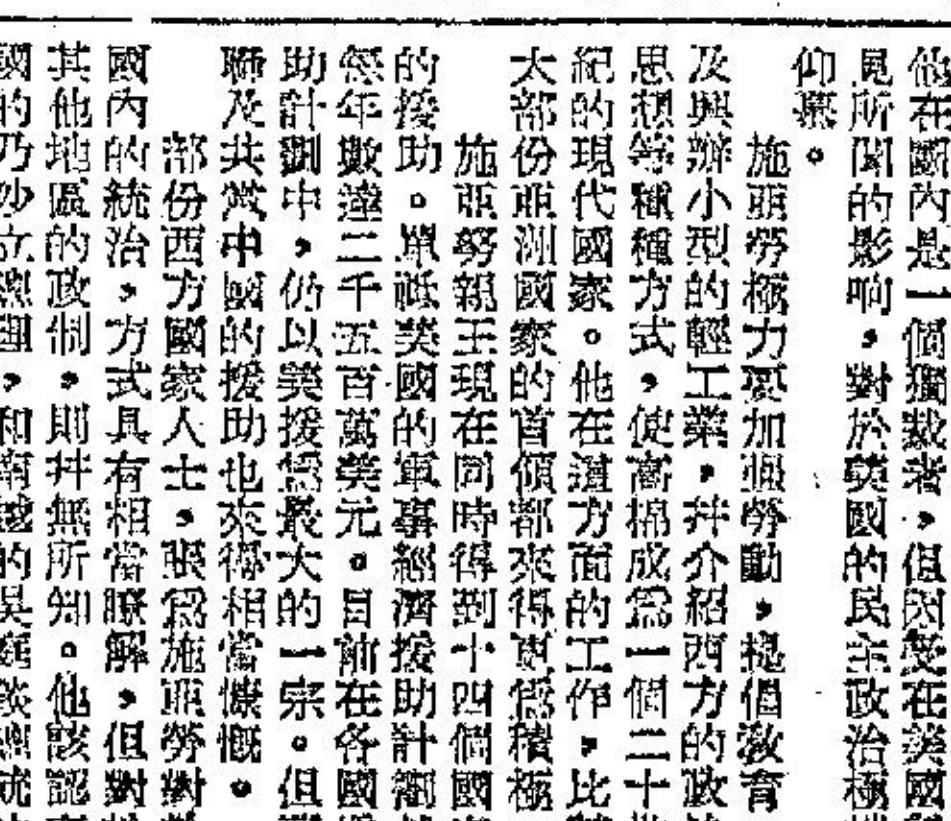 他在國內是一個獨裁者，但因受在美國
見所聞的影响，對於英國的民主政治極
仰慕。
施亞努極力要加强勞動，提倡敎育
及興辦小型的輕工業，并介紹西方的政
思想等種種方式，使高棉成爲一個二十
紀的現代國家。他在這方面的工作，比
大部份亞洲國家的首領都來得更爲積極
施亞努親王現在同時得到十四個國
的援助。單祗美國的軍事經濟援助計
經年數達二千五百萬美元。目前在各國
助計劃中，仍以美援爲最大的一宗。但
聯及共黨中國的援助也來得相當慷慨。
部份西方國家人士，認爲施亞努對
國內的統治，方式具有相當瞭解，但對
其他地區的政制，則并無所知。他認
國的乃沙立 ，和南越的吳庭